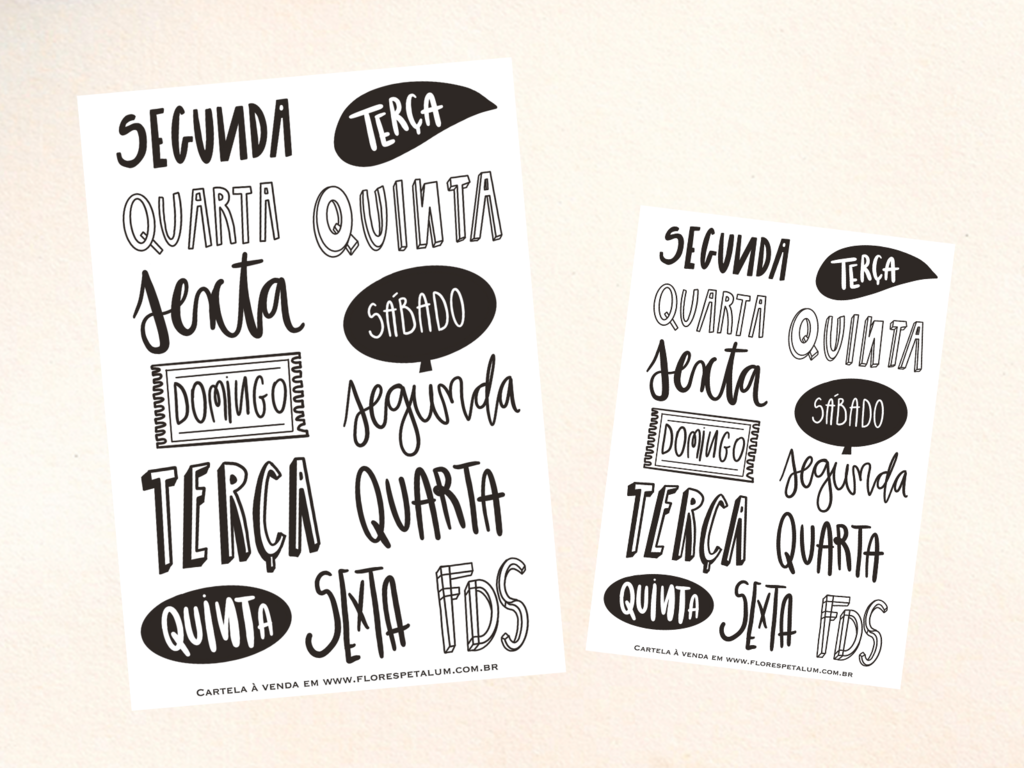 SEGUNDA
TERÇA
QUARTA
QUINTA
sexta
SÁBADO
DOMINGO
segunda
TERÇA
QUARTA
QUINTA
SEXTA
FDS
CARTELA À VENDA EM WWW.FLORESPETALUM.COM.BR
SEGUNDA
TERÇA
QUARTA
QUINTA
sexta
SÁBADO
DOMINGO
segunda
TERÇA
QUARTA
QUINTA
SEXTA
FDS
CARTELA À VENDA EM WWW.FLORESPETALUM.COM.BR